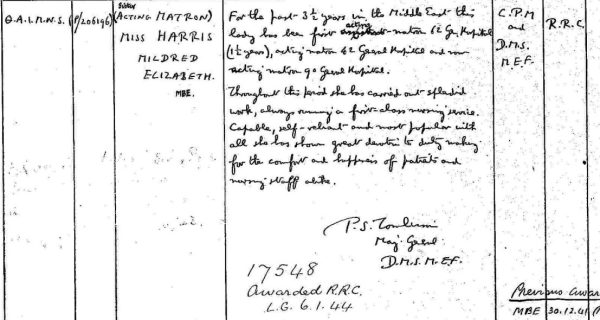 Q.A.I.M.N.S.
(P/206196)
Sister
(ACTING MATRON)
MISS HARRIS
MILDRED
ELIZABETH.
MBE.
For the past 3½ years in the Middle East this
lady has been first acting matron 62 General Hospital
(1½ years), acting matron 62 General Hospital and now
acting matron 90 General Hospital.
Throughout this period she has carried out splendid
work, always running a first-class nursing service.
Capable, self-reliant and most popular with
all she has shown great devotion to duty making
for the comfort and happiness of patients and
nursing staff alike.
P.S. Tomlinson
Maj. General
D.M.S. M.E.F.
17548
Awarded R.R.C.
L.G. 6.1.44
C.P.M
and
D.M.S.
M.E.F.
R.R.C.
Previous
MBE 30.12.41